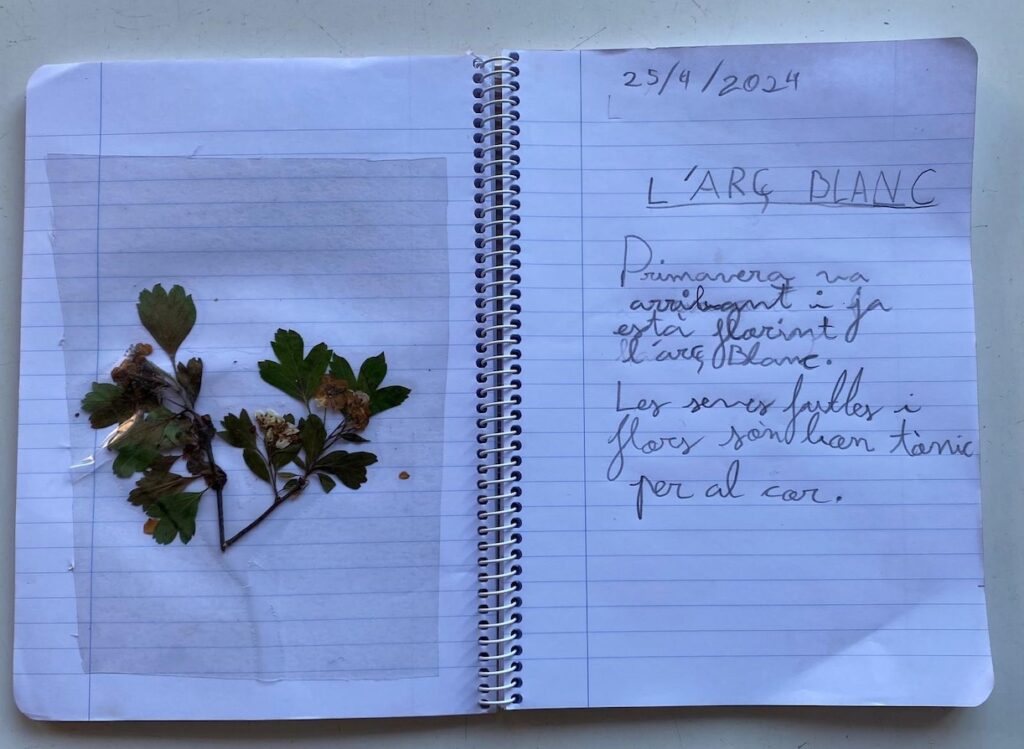 25/4/2024
L'ARÇ BLANC
Primavera va
arribant i ja
està florint
l'arç Blanc.
Les seves fulles i
flors sòn bon tònic
per al cor.